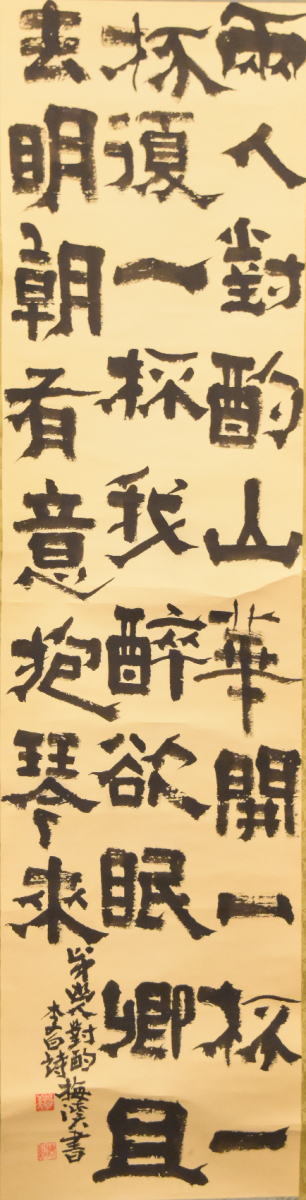 兩人對酌山華開一杯一
杯復一杯我醉欲眠卿且
去明朝有意抱琴來
對酌
李白詩
梅溪書